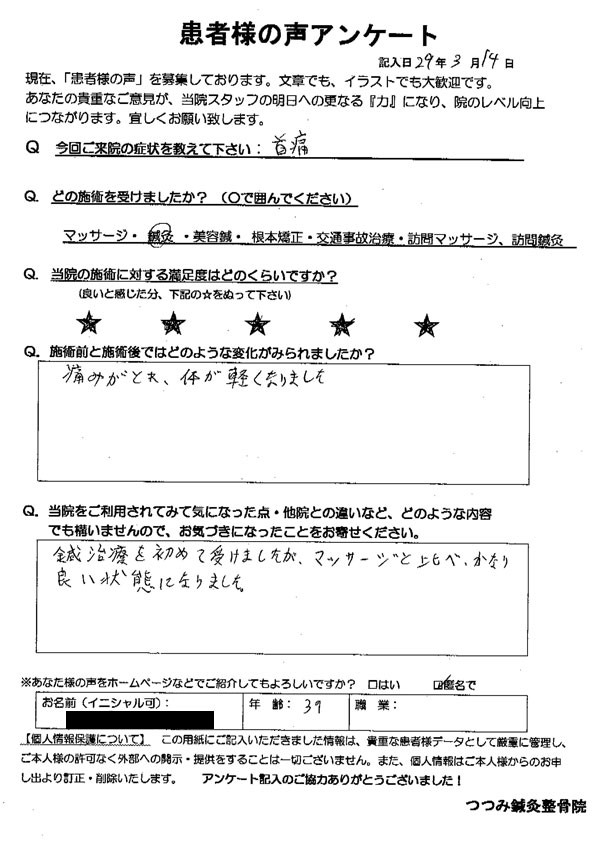 患者様の声アンケート
記入日 29年 3 月 14 日
現在、「患者様の声」を募集しております。文章でも、イラストでも大歓迎です。
あなたの貴重なご意見が、当院スタッフの明日への更なる『力』になり、院のレベル向上
につながります。宜しくお願い致します。
Q 今回ご来院の症状を教えて下さい: 首痛
Q. どの施術を受けましたか?(〇で囲んでください)
マッサージ・ 鍼灸 ・美容鍼・ 根本矯正・交通事故治療・訪問マッサージ、訪問鍼灸
Q. 当院の施術に対する満足度はどのくらいですか?
(良いと感じた分、下記の☆をぬって下さい)
★ ★ ★ ★ ★
Q. 施術前と施術後ではどのような変化がみられましたか?
痛みがとれ、体が軽くなりました
Q. 当院をご利用されてみて気になった点・他院との違いなど、どのような内容
でも構いませんので、お気づきになったことをお寄せください。
鍼治療を初めて受けましたが、マッサージと比べ、かなり
良い状態になりました。
※あなた様の声をホームページなどでご紹介してもよろしいですか? □はい ☑匿名で
お名前(イニシャル可): 年 齢: 39 職 業:
【個人情報保護について】 この用紙にご記入いただきました情報は、貴重な患者様データとして厳重に管理し、
ご本人様の許可なく外部への開示・提供をすることは一切ございません。また、個人情報はご本人様からのお申
し出より訂正・削除いたします。 アンケート記入のご協力ありがとうございました!
つつみ鍼灸整骨院